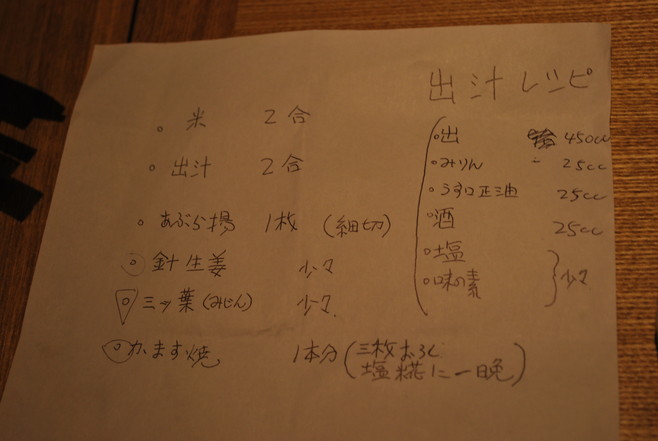 。米 2合
。出汁 2合
。あぶら揚 1枚 (細切)
。針生姜 少々
。三ッ葉(みじん) 少々
。かます焼 1本分(三枚おろし
塩糀に一晩)
出汁レシピ
。出 450cc
。みりん - 25cc
。うす口正油 25cc
。酒 25cc
。塩
。味の素 少々